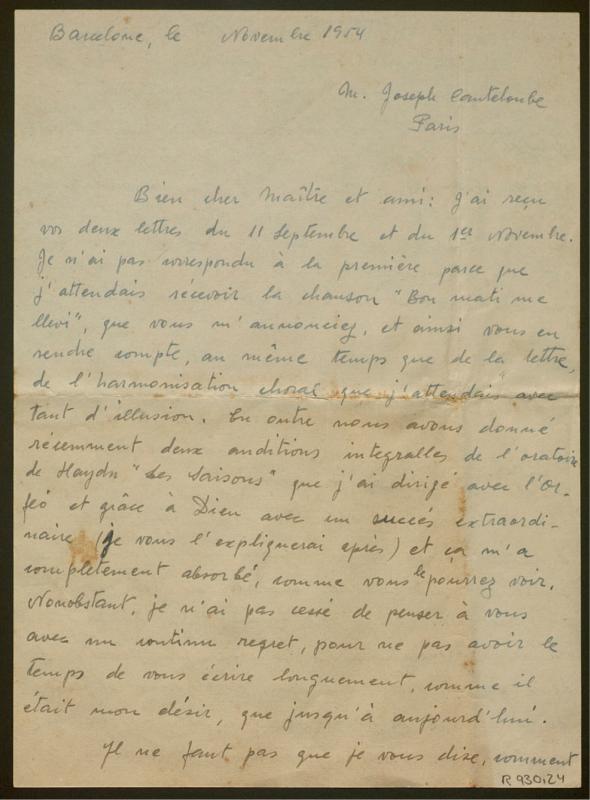 Barcelone, le Novembre 1954
M. Joseph Canteloube
Paris
Bien cher Maître et ami: J'ai reçu
vos deux lettres du 11 Septembre et du 1er Novembre.
Je n'ai pas correspondu à la première parce que
j'attendais récevoir la chanson "Bon mati me
llevi", que vous m'annonciez, et ainsi vous en
rendre compte, au même temps que de la lettre,
de l'harmonisation choral que j'attendais avec
tant d'illusion. En outre nous avons donné
récemment deux auditions integralles de l'oratoire
de Haydn "Les Saisons" que j'ai dirigé avec l'Or-
feó et grâce à Dieu avec un succés extraordi-
naire (je vous l'expliquerai après) et ça m'a
completement absorbé, comme vous le pourrez voir.
Nonobstant, je n'ai pas cessé de penser à vous
avec un continu regret, pour ne pas avoir le
temps de vous écrire longuement, comme il
était mon désir, que jusqu'à aujourd'hui.
Il ne faut pas que je vous dise, comment
R 930,24